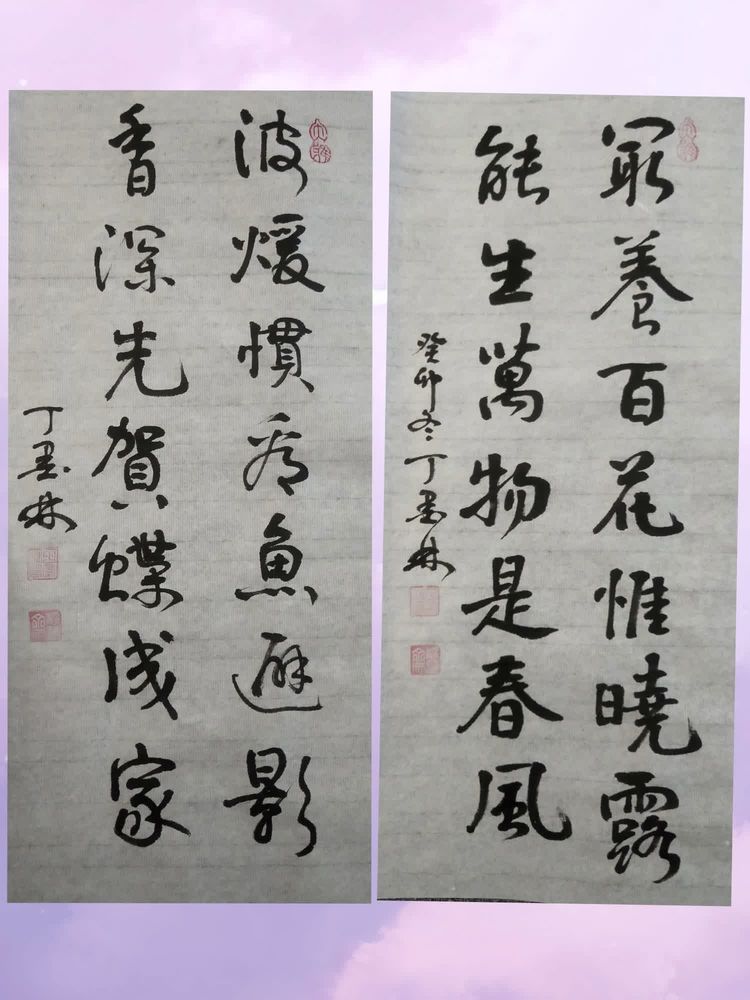 最養百花惟曉露
能生萬物是春風
癸卯冬丁墨林
波煖慣看魚避影
香深先賀蝶成家
丁墨林